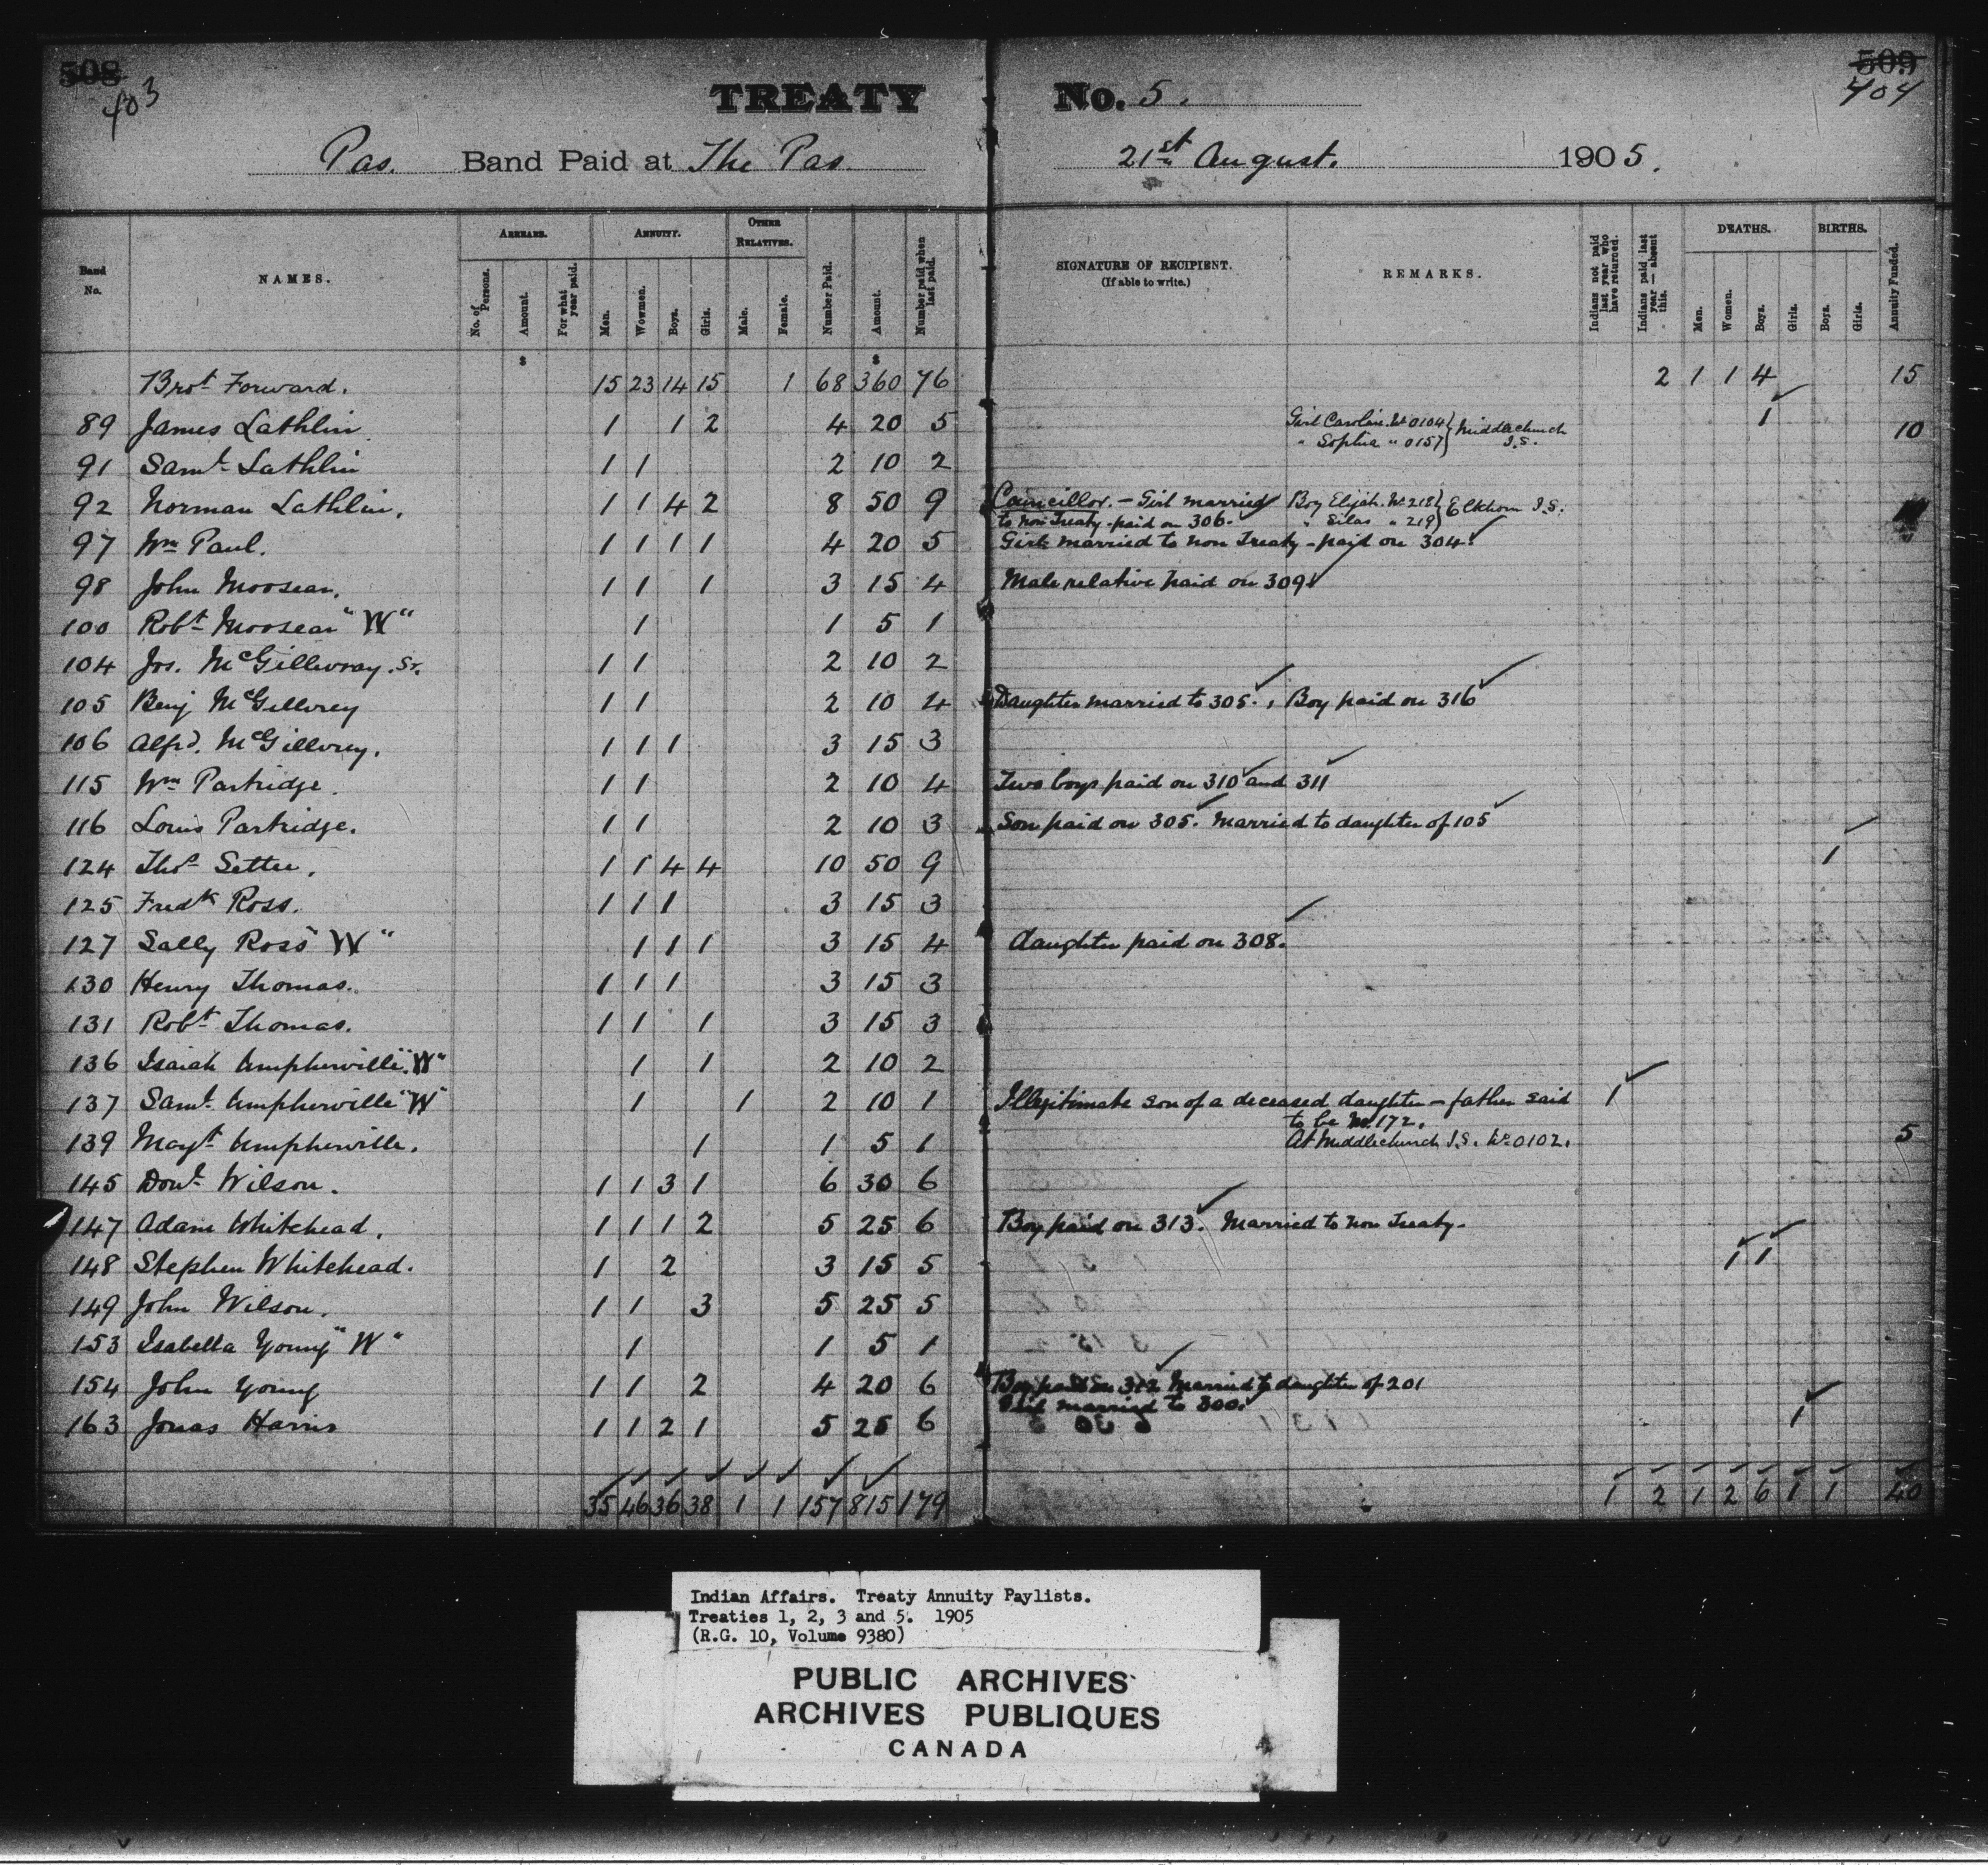 508 509
403 404
TREATY No. 5.
Pas. Band Paid at The Pas. 21st August. 1905.
Band No. NAMES. ARREARS. No. of Persons. Amount. For what year paid. ANNUITY. Men. Wowmen. Boys. Girls. OTHER RELATIVES. Male. Female. Number Paid. Amount. Number paid when last paid. SIGNATURE OF RECIPIENT. (If able to write.) REMARKS. Indians not paid last year who have returned. Indians paid last year — absent this. DEATHS. Men. Women. Boys. Girls. BIRTHS. Boys. Girls. Annuity Funded.
$ $
Brot Forward. 15 23 14 15 1 68 360 76 2 1 1 4 15
89 James Lathlin. 1 1 2 4 20 5 Girl Caroline No 0104 } Middlechurch 1 10
" Sophia " 0157 } I.S.
91 Saml Lathlin 1 1 2 10 2
92 Norman Lathlin. 1 1 4 2 8 50 9 Councillor. — Girl married Boy Elijah. No 218 } Elkhorn I.S.
to non Treaty - paid on 306. " Silas " 219 }
97 Wm Paul. 1 1 1 1 4 20 5 Girl married to non Treaty - paid on 304.
98 John Moosear. 1 1 1 3 15 4 Male relative paid on 309
100 Robt Moosear "W" 1 1 5 1
104 Jos. McGillivray. Sr. 1 1 2 10 2
105 Benj McGillvrey 1 1 2 10 4 Daughter married to 305., Boy paid on 316
106 Alfd. McGillvrey. 1 1 1 3 15 3
115 Wm Partridge. 1 1 2 10 4 Two boys paid on 310 and 311
116 Louis Partridge. 1 1 2 10 3 Son paid on 305. Married to daughter of 105
124 Thos Settee. 1 1 4 4 10 50 9 1
125 Fredk Ross. 1 1 1 3 15 3
127 Sally Ross "W" 1 1 1 3 15 4 daughter paid on 308.
130 Henry Thomas. 1 1 1 3 15 3
131 Robt Thomas. 1 1 1 3 15 3
136 Isaiah Umpherville "W" 1 1 2 10 2
137 Saml Umpherville "W" 1 1 2 10 1 Illegitimate son of a deceased daughter — father said 1
to be No 172.
139 Magt Umpherville. 1 1 5 1 At Middlechurch I.S. No 0102. 5
145 Dond Wilson. 1 1 3 1 6 30 6
147 Adam Whitehead. 1 1 1 2 5 25 6 Boy paid on 313. Married to non Treaty.
148 Stephen Whitehead. 1 2 3 15 5 1 1
149 John Wilson. 1 1 3 5 25 5
153 Isabella Young "W" 1 1 5 1
154 John Young 1 1 2 4 20 6 Boy paid on 312 Married to daughter of 201
Girl married to 300.
163 Jonas Harris 1 1 2 1 5 25 6 1
35 46 36 38 1 1 157 815 179 1 2 1 2 6 1 1 40
Indian Affairs. Treaty Annuity Paylists.
Treaties 1, 2, 3 and 5. 1905
(R.G. 10, Volume 9380)
PUBLIC ARCHIVES
ARCHIVES PUBLIQUES
CANADA